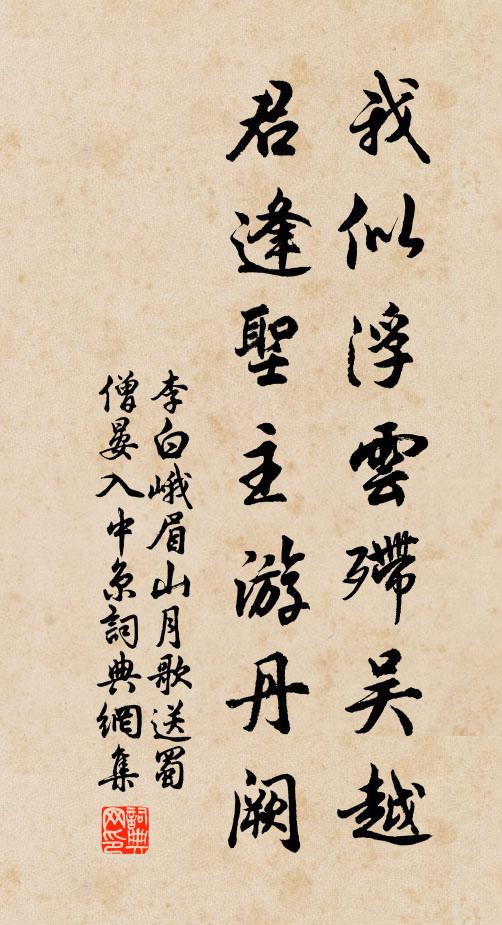 我似浮雲殢吳越
君逢聖主游丹闕
李白峨眉山月歌送蜀
僧晏入中京詞典網集
詞典
网印